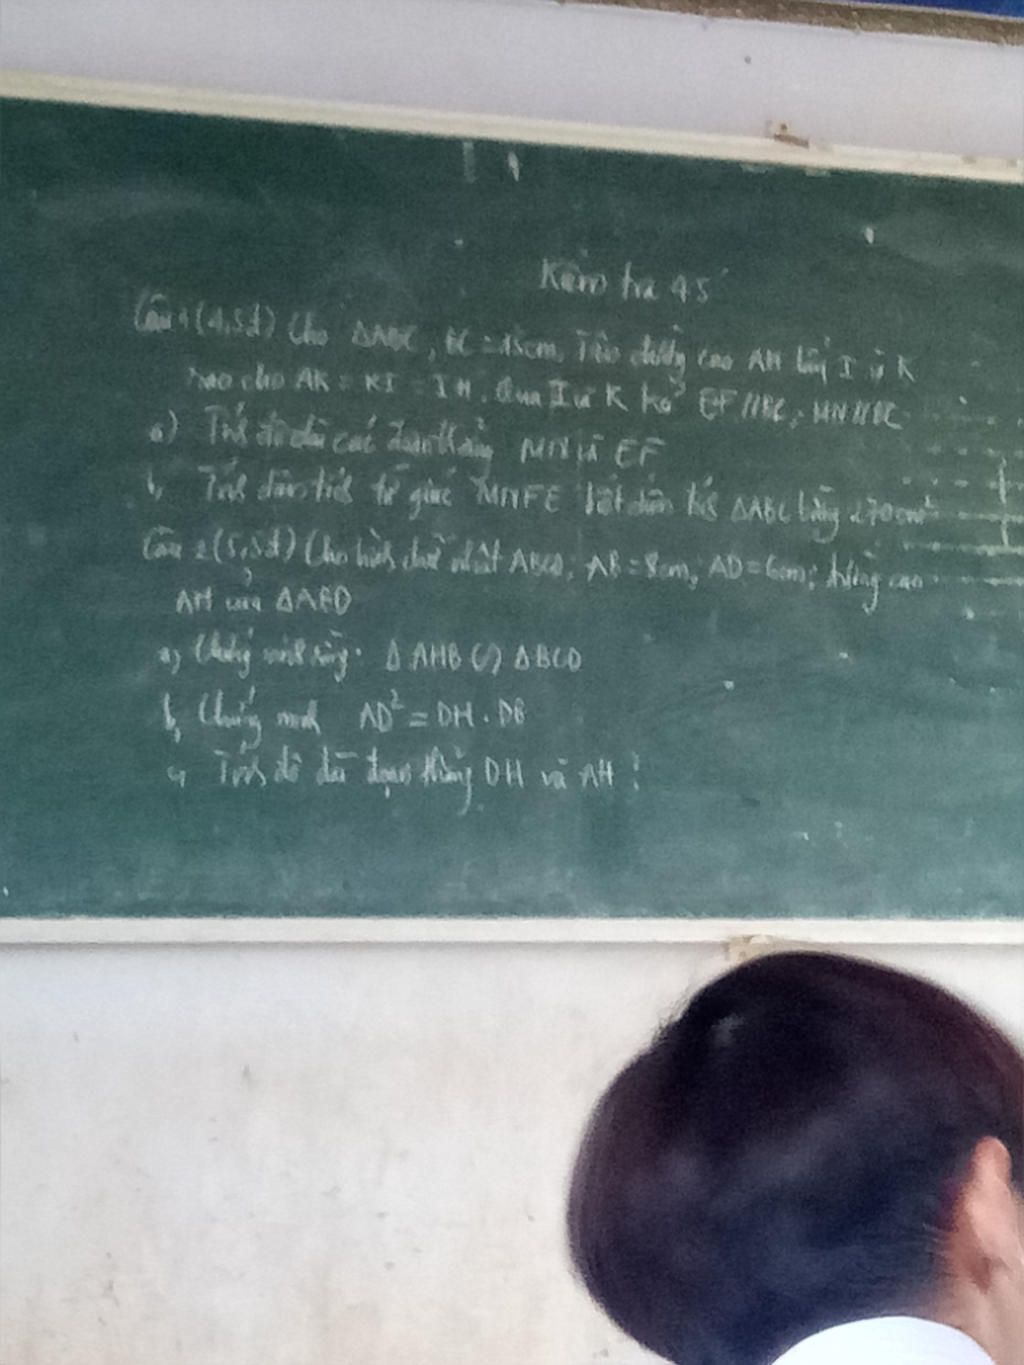 Kiểm tra 45'
Câu 1 (4,5đ) Cho ΔABC, BC = 15cm. Trên đường cao AH lấy I và K
sao cho AK = KI = IH. Qua I và K kẻ EF//BC; MN//BC
a) Tính độ dài các đoạn thẳng MN và EF
b, Tính diện tích tứ giác MNFE biết diện tích ΔABC bằng 270cm²
Câu 2 (5,5đ) Cho hình chữ nhật ABCD; AB = 8cm; AD = 6cm; đường cao
AH của ΔABD
a, Chứng minh rằng: ΔAHB ∽ ΔBCD
b, Chứng minh AD² = DH . DB
c, Tính độ dài đoạn thẳng DH và AH !